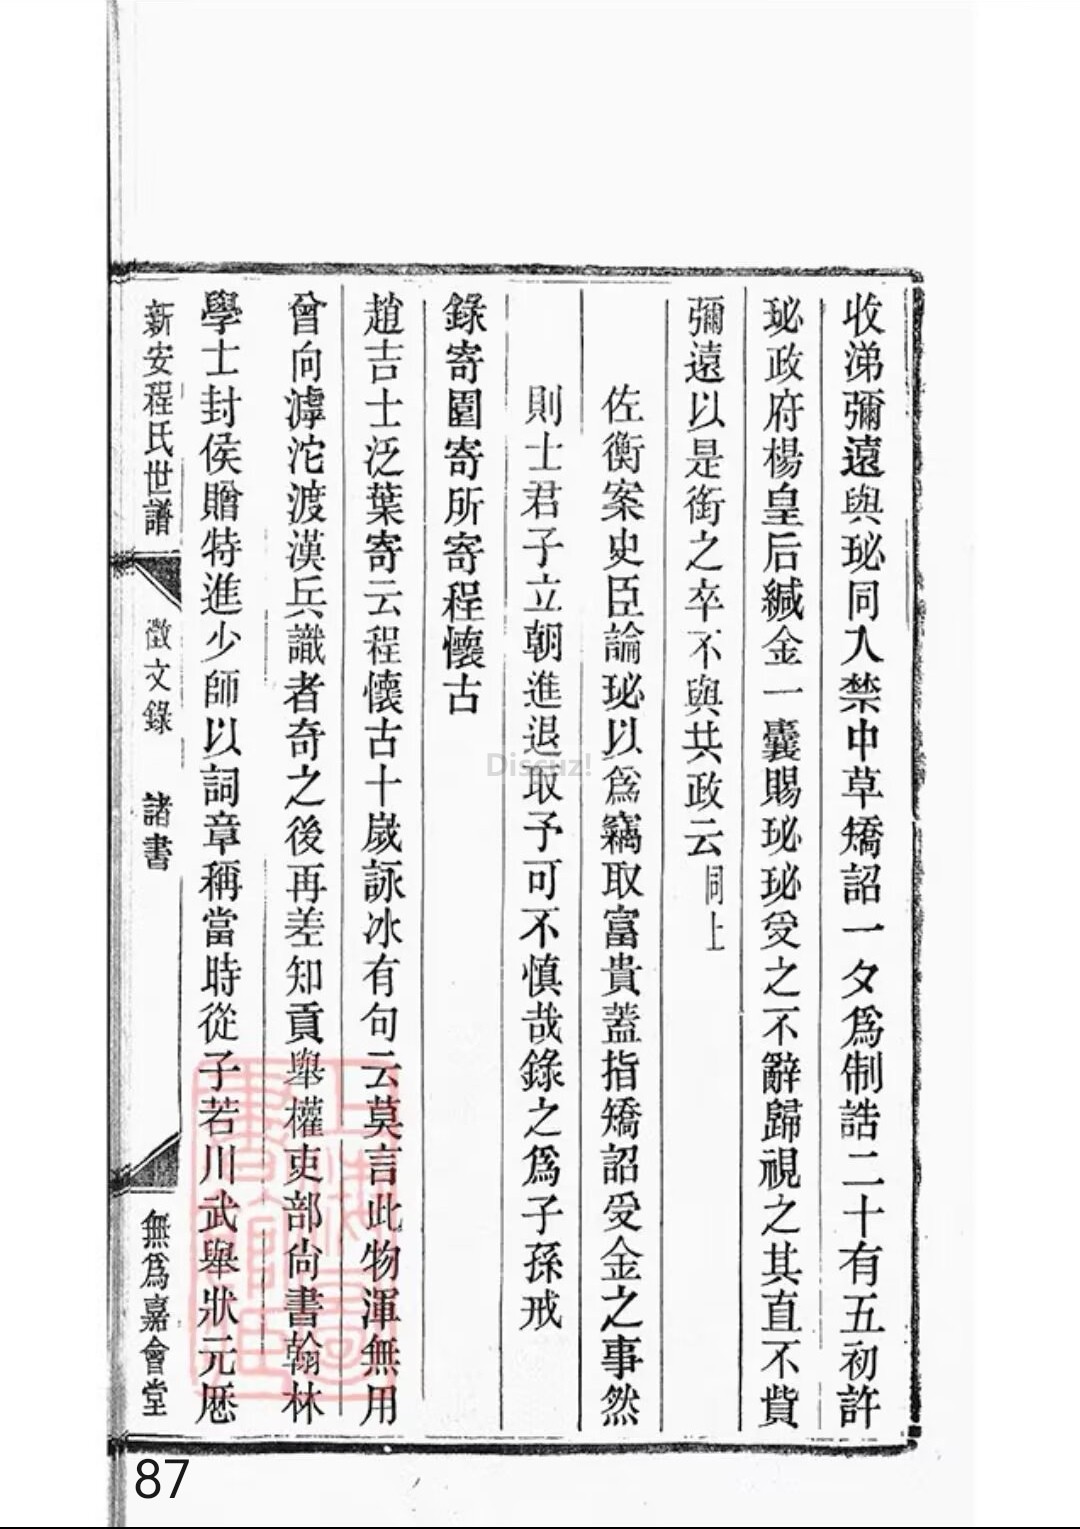 收涕彌遠與珌同入禁中草矯詔一夕爲制誥二十有五初許
珌政府楊皇后緘金一囊賜珌珌受之不辭歸視之其直不貲
彌遠以是銜之卒不與共政云同上
佐衡案史臣論珌以爲竊取富貴蓋指矯詔受金之事然
則士君子立朝進退取予可不慎哉錄之爲子孫戒
錄寄園寄所寄程懷古
趙吉士泛葉寄云程懷古十歲詠冰有句云莫言此物渾無用
曾向滹沱渡漢兵識者奇之後再差知貢舉權吏部尙書翰林
學士封侯贈特進少師以詞章稱當時從子若川武舉狀元歷
新安程氏世譜
徵文錄 諸書
無爲嘉會堂
Discuz!
87